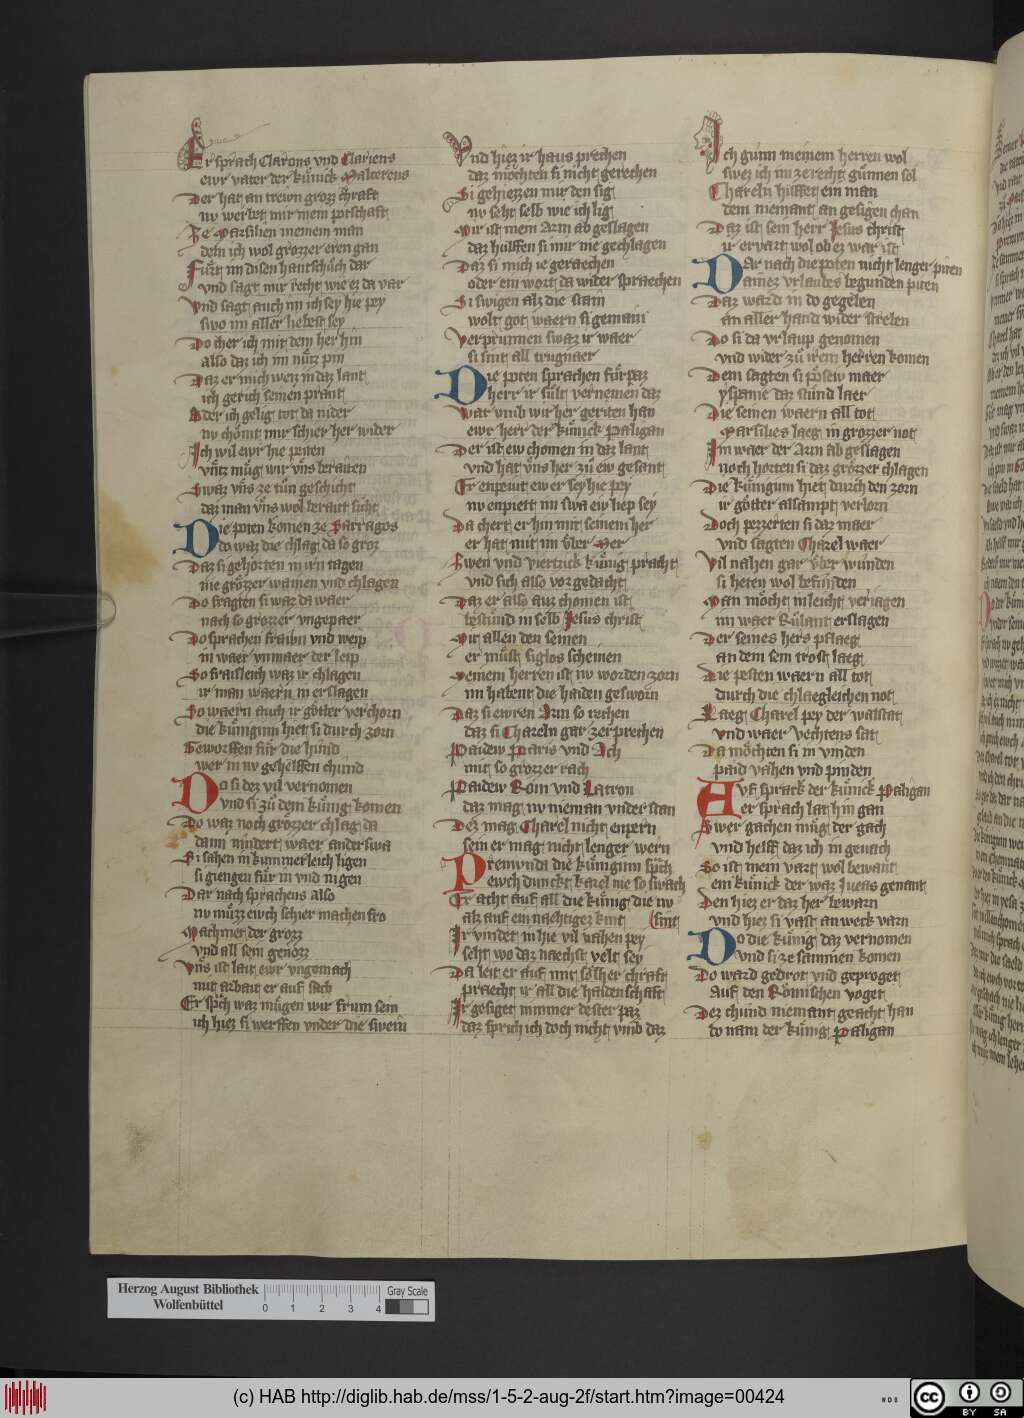 Er sprach Clarions vnd Clariens
ewr vater der kuͤnick Malterens
Der hat an trewn grozz chraft
nv werbet mir mein potschaft
Ze Marsilien meinem man
dem ich wol grozzer eren gan
Fuͤrt im disen hantschuͦch dar
vnd sagt mir recht wie ez da var
Vnd sagt auch im ich sey hie pey
swo im aller liebest sey
Do cher ich mit dem her hin
also daz ich im nuͤtz pin
Daz er mich weiz in daz lant
ich gerich seinen prant
Oder ich gelig tot da nider
nv choͤmt mir schier her wider
Ich wil ewr hie peiten
vntz muͤg wir vns beraiten
Swaz vns ze tuͦn geschicht
daz man vns wol berait sicht
Die poten komen ze Sarragos
do waz die chlag da so groz
Daz si gehorten in irn tagen
nie grozzer wainen vnd chlagen
Do fragten si waz da waer
nach so grozzer vngepaer
Do sprachen frawn vnd weip
in waer vnmaer der leip
So fraisleich waz ir chlagen
ir man waern in erslagen
So waern auch ir goͤtter verchorn
die kuͤnginn hiet si durch zorn
Geworffen fuͤr die hund
wer in nv gehelffen chund
Do si dez vil vernomen
vnd si zuͦ dem kuͤnig komen
Do waz noch grozzer chlag da
dann nindert waer anderswa
Si sahen in kummerleich ligen
si giengen fuͤr in vnd nigen
Dar nach sprachens also
nv muͤzz ewch schier machen fro
Machmet der grozz
vnd all sein genozz
Vns ist lait ewr vngemach
mit arbait er auf sach
Er sprach waz muͤgen wir frum sein
ich hiez si werffen vnder die swein
Vnd hiez ir haus prechen
daz moͤchten si nicht gerechen
Si gehiezzen mir den sig
nv seht selb wie ich lig
Mir ist mein Arm ab geslagen
daz huͤlffen si mir nie gechlagen
Daz si mich ie geraechen
oder ein wort da wider spraechen
Si swigen alz die stain
wolt got waern si gemain
Verprunnen swaz ir waer
si sint all trugnaer
Die poten sprachen fuͤrpaz
herr ir suͤlt vernemen daz
War vmb wir her geriten han
ewr herr der kuͤnick Paligan
Der ist ew chomen in daz lant
vnd hat vns her zuͦ ew gesant
Er enpeut ew er sey hie pey
nv enpiett im swa ew liep sey
Da chert er hin mit seinem her
er hat mit im vͤber Mer
Zwen vnd viertzick kuͤnig pracht
vnd sich also vor gedacht
Daz er also auz chomen ist
bestuͤnd in selb Jesus christ
Mit allen den seinen
er muͤst siglos scheinen
Meinem herren ist nv worden zorn
im habent die haiden gesworn
Daz si ewren Arm so rechen
daz si Chareln gar zerprechen
Paidew Paris vnd Ach
mit so grozzer rach
Paidew Rom vnd Latron
daz mag nv nieman vnder stan
Dez mag Charel nicht enpern
sein er mag nicht lenger wern
Premvnda die kuͤniginn sprach
ewch dunckt karel nie so swach
Er acht auf all die kuͤnig die nv
alz auf ein naechtigez kint (sint
Ir vindet in hie vil nahen pey
seht wo daz naechst velt sey
Da leit er auf mit solher chraft
praecht ir all die haidenschaft
Ir gesiget nimmer dester paz
daz sprich ich doch nicht vmb daz
Ich gunn meinem herren wol
swez ich im ze recht guͤnnen sol
Chareln hilffet ein man
dem niemant an gesigen chan
Daz ist sein herr Jesus christ
ir ervart wol ob ez war ist
Dar nach die poten nicht lenger piten
ainez vrlaubes begunden piten
Daz ward in do gegeben
an aller hand wider streben
Do si da vrlaup genomen
vnd wider zuͦ irem herren komen
Dem sagten si poͤsew maer
yspanie daz stuͤnd laer
Die seinen waern all tot
Marsilies laeg in grozzer not
Im waer der Arm ab geslagen
noch horten si daz grozzer chlagen
Die kuͤnginn hiet durch den zorn
ir goͤtter allsampt verlorn
Doch pezzerten si daz maer
vnd sagten Charel waer
Vil nahen gar vͤber wunden
si heten wol befunden
Man moͤcht in leicht veriagen
im waer Ruͦlant erslagen
Der seines hers pflaeg
an dem sein trost laeg
Die pesten waern all tot
durch die chlaegleichen not
Laeg Charel pey der walstat
vnd waer vechtens sat
Da moͤchten si in vinden
paid vahen vnd pinden
Auf sprach der kuͤnick Paligan
er sprach lat hin gan
Swer gachen muͤg der gach
vnd helff daz ich in genach
So ist mein vart wol bewant
ein kuͤnick der waz Jucas genant
Den hiez er daz her bewarn
vnd hiez si vast anweck varn
Do die kuͤnig daz vernomen
vnd si ze sammen komen
Do ward gedrot vnd geproget
Auf den Roͤmischen voget
Dez chuͤnd niemant geacht han
do nam der kuͤnig Paligan
Herzog August Bibliothek
Wolfenbüttel
0 1 2 3 4
Gray Scale
(c) HAB http://diglib.hab.de/mss/1-5-2-aug-2f/start.htm?image=00424
WDB
cc BY SA